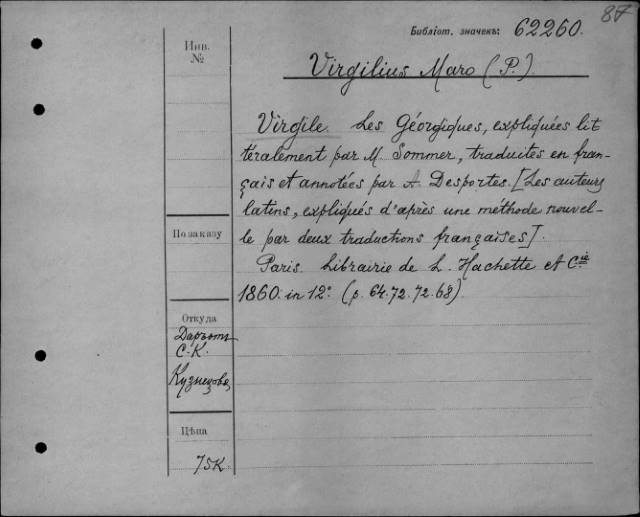 87
Библіот. значекъ: 62260.
Инв.
№
Virgilius Maro (P.)
Virgile. Les Géorgiques, expliquées lit
téralement par M. Sommer, traduites en fran-
çais et annotées par A. Desportes. [Les auteurs
latins, expliqués d'après une méthode nouvel-
По заказу
le par deux traductions françaises].
Paris. Librairie de L. Hachette et Cie
1860. in 12° (p. 64. 72. 72. 68).
Откуда
Даръ отъ
С. К.
Кузнецова
Цѣна
75к